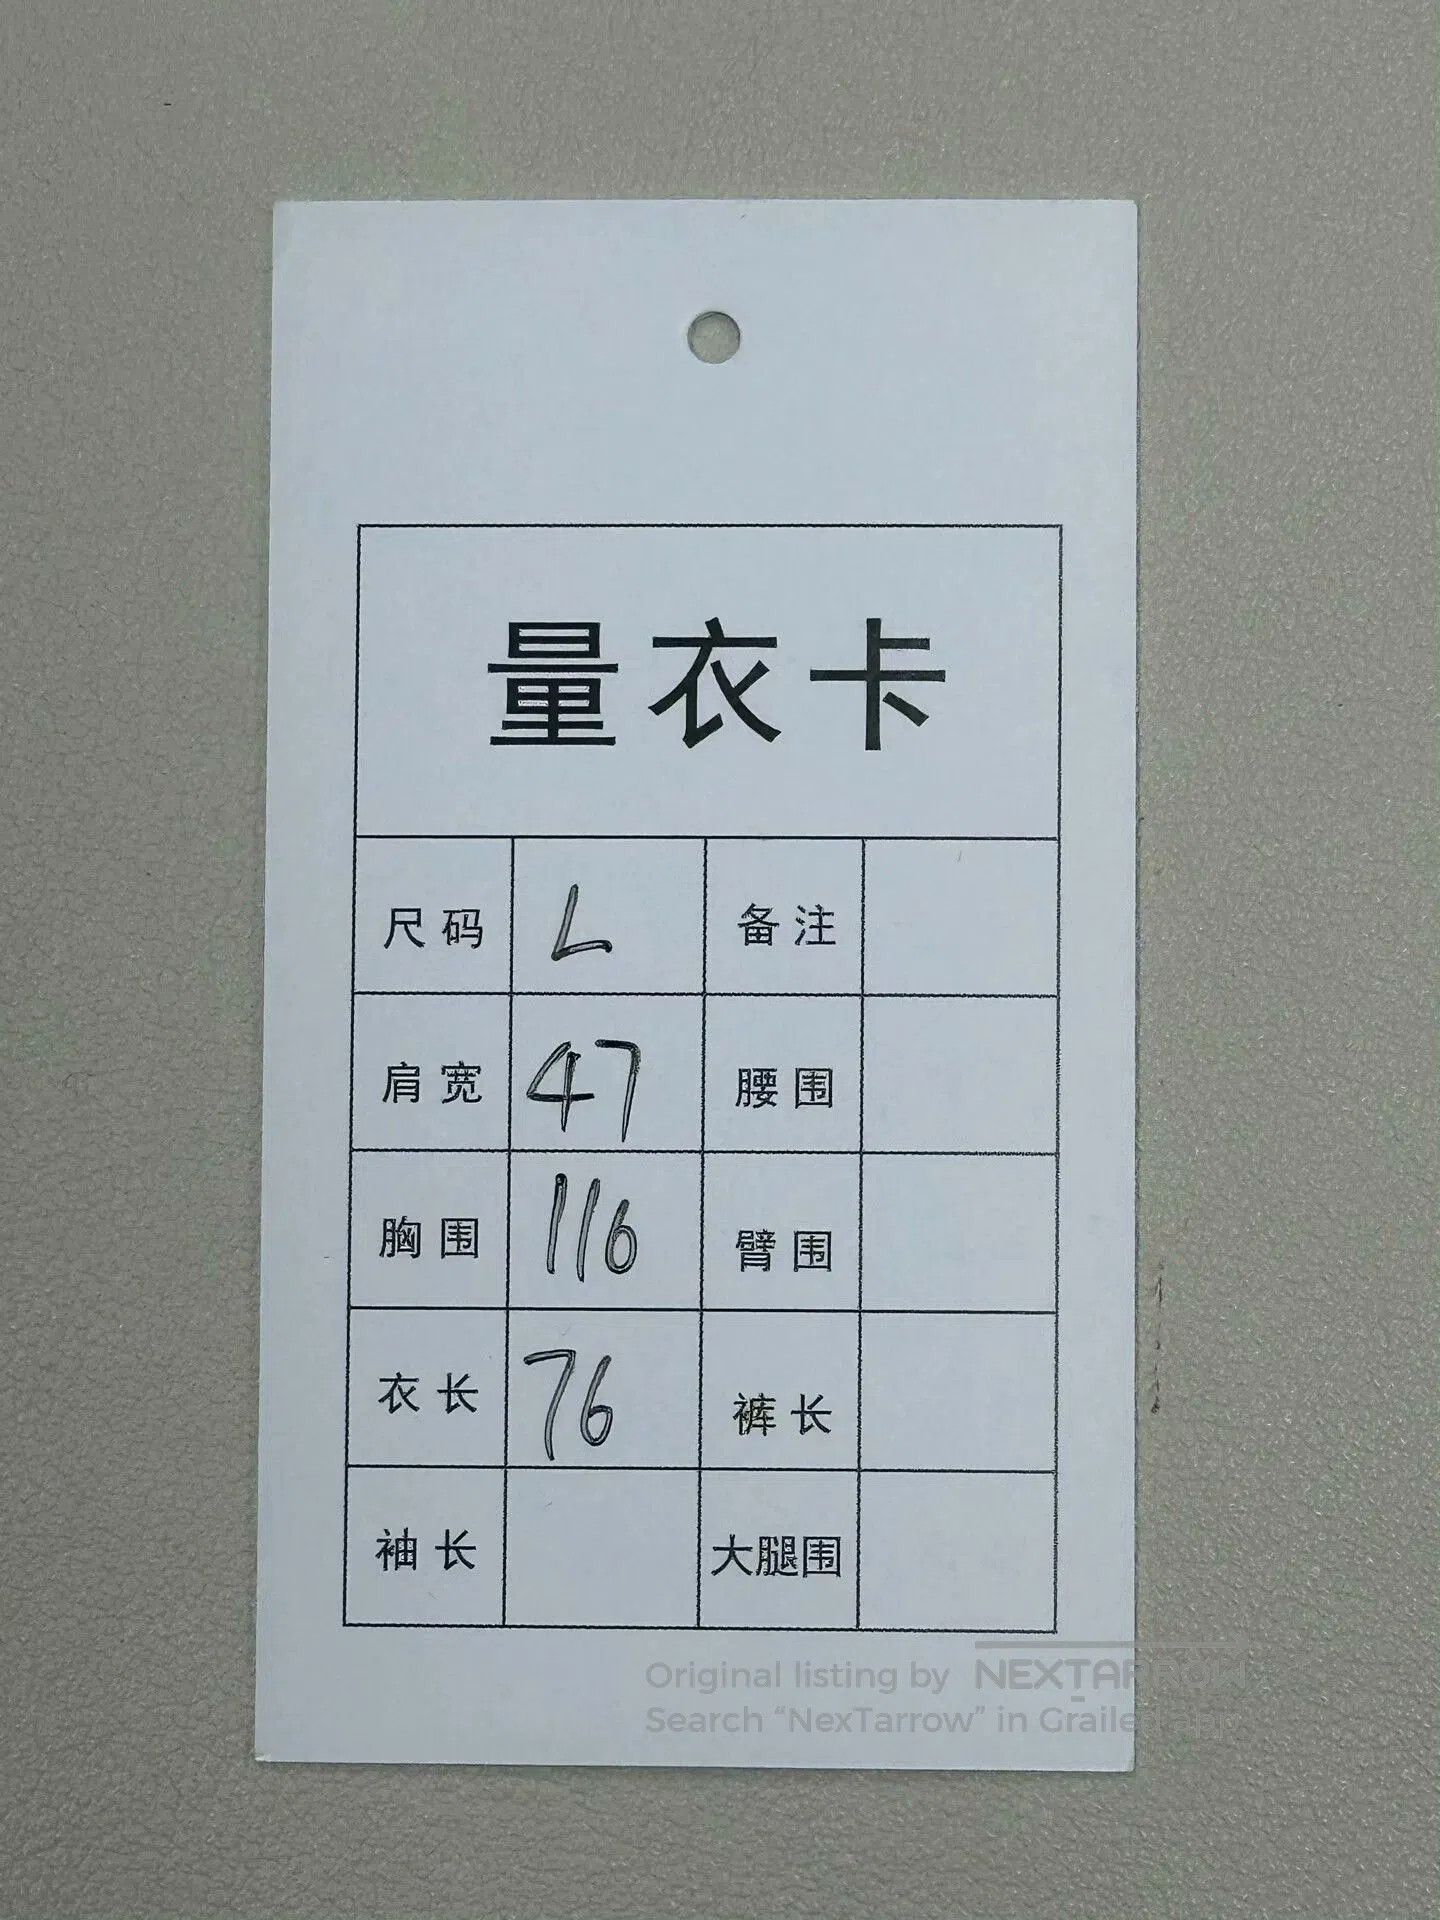 量衣卡
尺码 L 备注
肩宽 47 腰围
胸围 116 臂围
衣长 76 裤长
袖长 大腿围
Original listing by NEXTARROW
Search “NexTarrow” in Grailed app